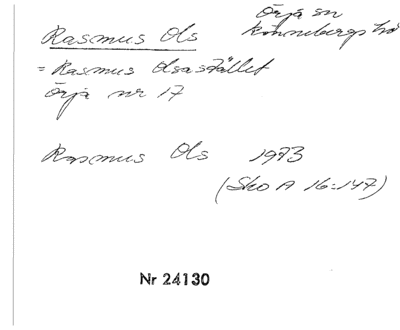 Örja sn
Rasmus Ols Rönnebergs hd
= Rasmus Olsastället
Örja nr 17
Rasmus Ols 1973
(Sko A 16:147)
Nr 24130